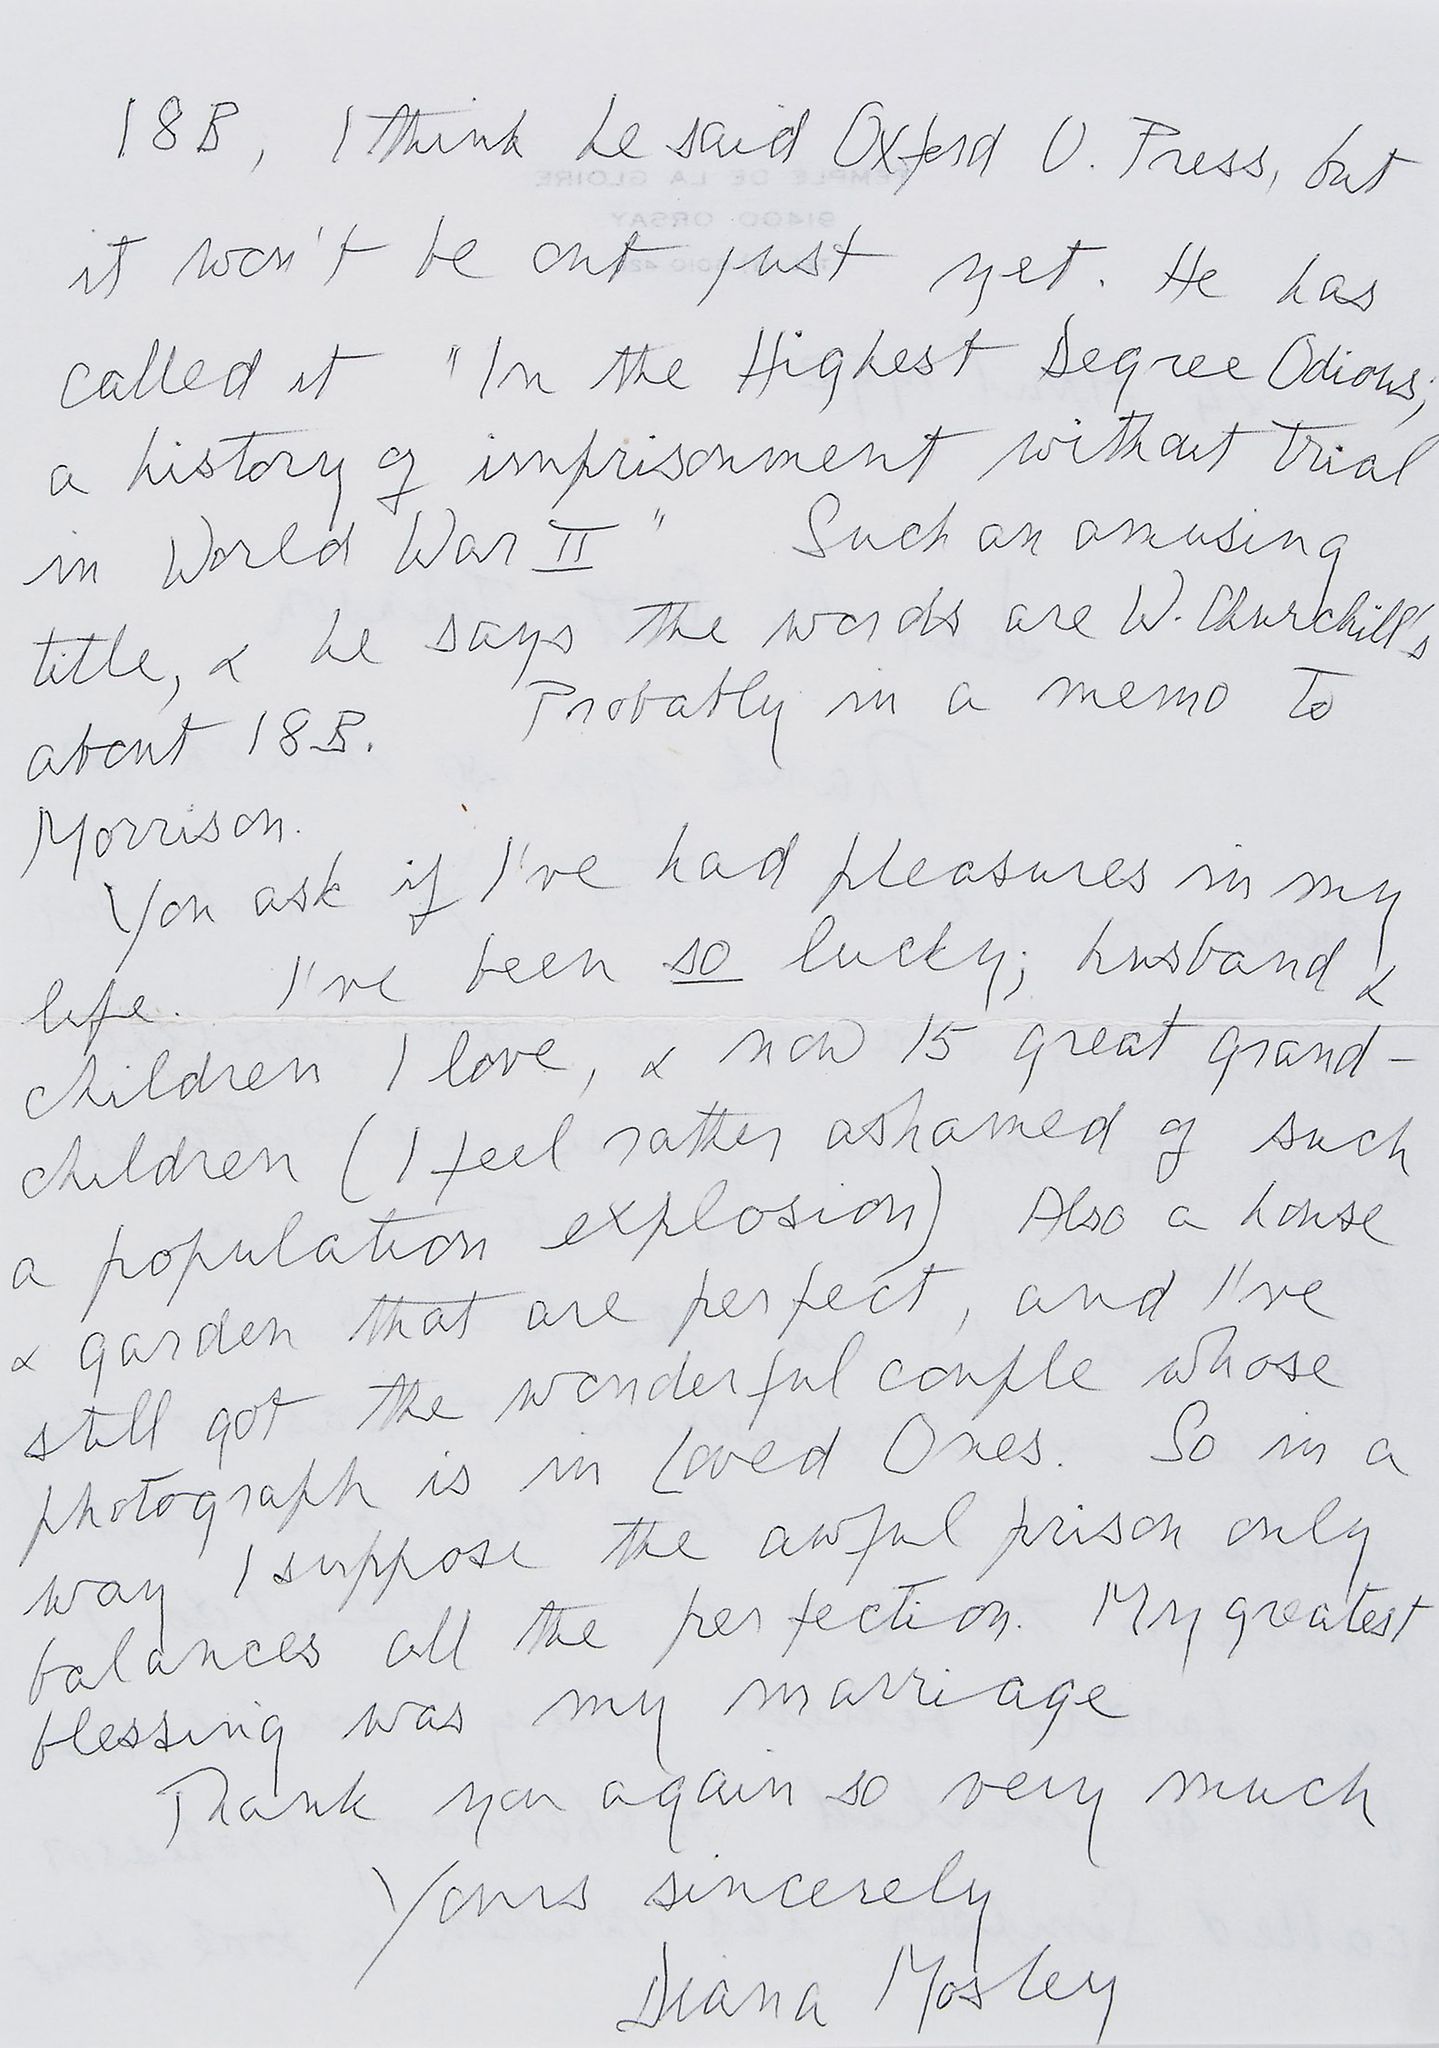 18B, I think he said Oxford U. Press, but
it won't be out just yet. He has
called it "In the Highest Degree Odious;
a history of imprisonment without trial
in World War II" Such an amusing
title, & he says the words are W. Churchill's
about 18B. Probably in a memo to
Morrison.
You ask if I've had pleasures in my
life. I've been so lucky; husband &
children I love, & now 15 great grand-
children (I feel rather ashamed of such
a population explosion) Also a house
& garden that are perfect, and I've
still got the wonderful couple whose
photograph is in Loved Ones. So in a
way I suppose the awful prison only
balances all the perfection. My greatest
blessing was my marriage
Thank you again so very much
Yours sincerely
Diana Mosley
TEMPLE DE LA GLOIRE
91400 ORSAY